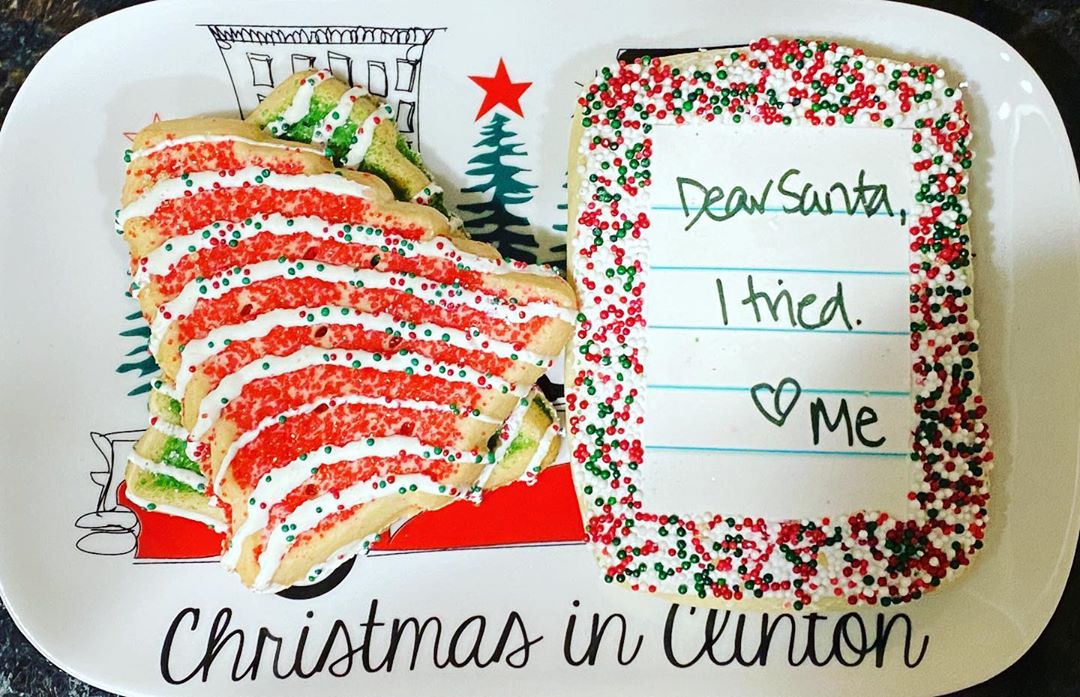 Dear Santa,
I tried.
♡ Me
Christmas in Clinton